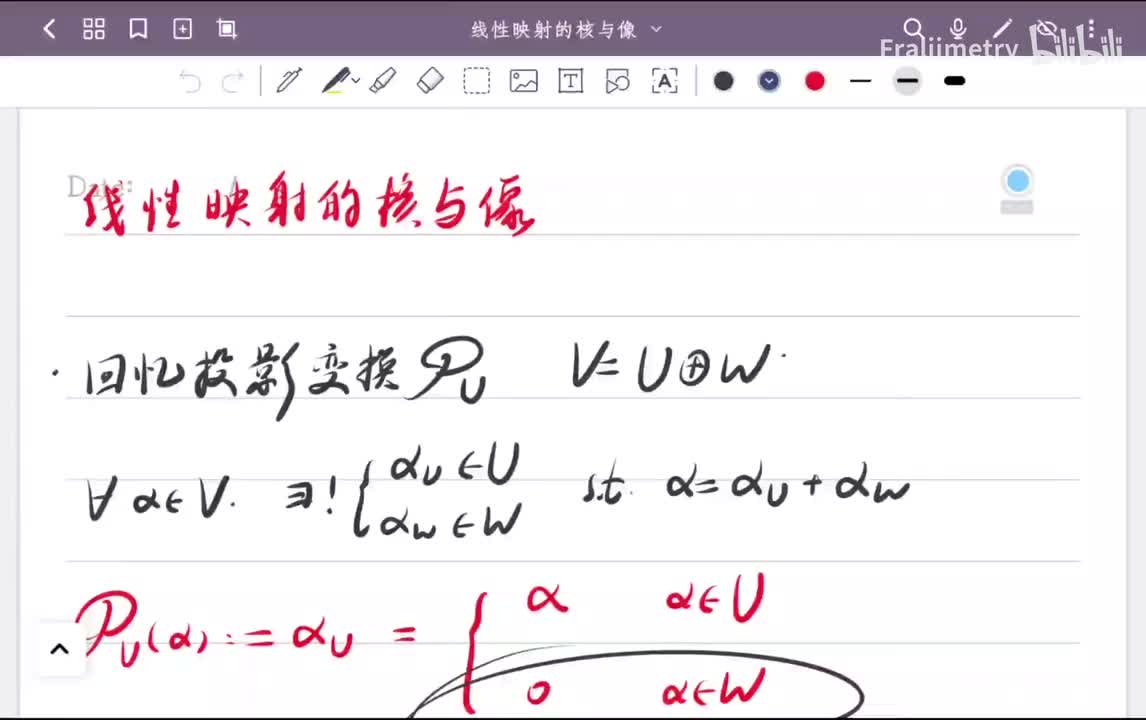 线性映射的核与像
Eraliimetry bilibili
Date:
线性映射的核与像
· 回忆投影变换 𝒫_U V = U ⊕ W.
∀ α ∈ V. ∃! { α_U ∈ U
α_W ∈ W s.t. α = α_U + α_W
𝒫_U(α) := α_U = { α α ∈ U
0 α ∈ W